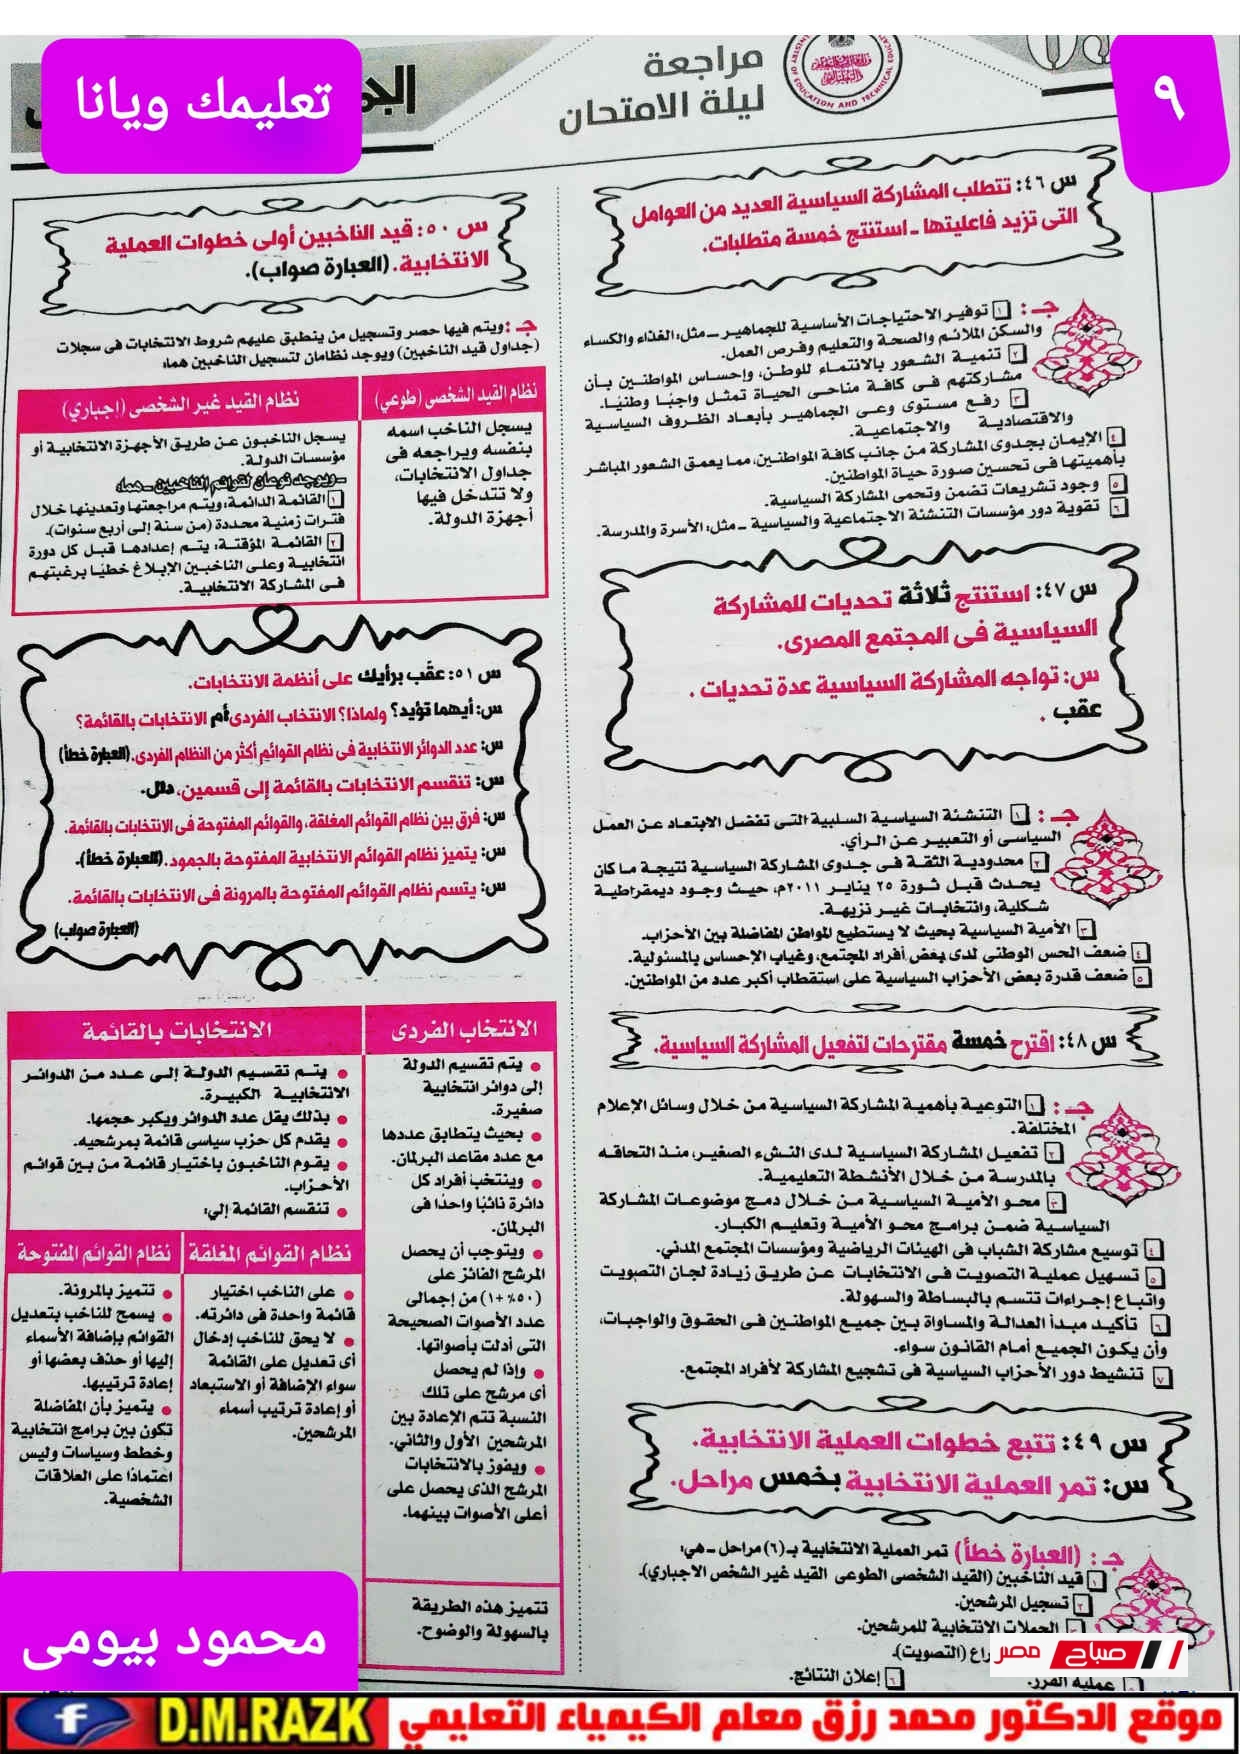 تعليمك ويانا
مراجعة
ليلة الامتحان
٩
س٤٦: تتطلب المشاركة السياسية العديد من العوامل
التى تزيد فاعليتها ـ استنتج خمسة متطلبات.
جـ: ١ توفير الاحتياجات الأساسية للجماهير ـ مثل: الغذاء والكساء
والسكن الملائم والصحة والتعليم وفرص العمل.
٢ تنمية الشعور بالانتماء للوطن، وإحساس المواطنين بأن
مشاركتهم فى كافة مناحى الحياة تمثل واجبًا وطنيًا.
٣ رفع مستوى وعى الجماهير بأبعاد الظروف السياسية
والاقتصادية والاجتماعية.
٤ الإيمان بجدوى المشاركة من جانب كافة المواطنين، مما يعمق الشعور المباشر
بأهميتها فى تحسين صورة حياة المواطنين.
٥ وجود تشريعات تضمن وتحمى المشاركة السياسية.
٦ تقوية دور مؤسسات التنشئة الاجتماعية والسياسية ـ مثل: الأسرة والمدرسة.
س٤٧: استنتج ثلاثة تحديات للمشاركة
السياسية فى المجتمع المصرى.
س: تواجه المشاركة السياسية عدة تحديات .
عقب .
جـ: ١ التنشئة السياسية السلبية التى تفضل الابتعاد عن العمل
السياسى أو التعبير عن الرأي.
٢ محدودية الثقة فى جدوى المشاركة السياسية نتيجة ما كان
يحدث قبل ثورة ٢٥ يناير ٢٠١١م، حيث وجود ديمقراطية
شكلية، وانتخابات غير نزيهة.
٣ الأمية السياسية بحيث لا يستطيع المواطن المفاضلة بين الأحزاب.
٤ ضعف الحس الوطنى لدى بعض أفراد المجتمع، وغياب الإحساس بالمسئولية.
٥ ضعف قدرة بعض الأحزاب السياسية على استقطاب أكبر عدد من المواطنين.
س٤٨: اقترح خمسة مقترحات لتفعيل المشاركة السياسية.
جـ: ١ التوعية بأهمية المشاركة السياسية من خلال وسائل الإعلام
المختلفة.
٢ تفعيل المشاركة السياسية لدى النشء الصغير، منذ التحاقه
بالمدرسة من خلال الأنشطة التعليمية.
٣ محو الأمية السياسية من خلال دمج موضوعات المشاركة
السياسية ضمن برامج محو الأمية وتعليم الكبار.
٤ توسيع مشاركة الشباب فى الهيئات الرياضية ومؤسسات المجتمع المدني.
٥ تسهيل عملية التصويت فى الانتخابات عن طريق زيادة لجان التصويت
واتباع إجراءات تتسم بالبساطة والسهولة.
٦ تأكيد مبدأ العدالة والمساواة بين جميع المواطنين فى الحقوق والواجبات،
وأن يكون الجميع أمام القانون سواء.
٧ تنشيط دور الأحزاب السياسية فى تشجيع المشاركة لأفراد المجتمع.
س٤٩: تتبع خطوات العملية الانتخابية.
س: تمر العملية الانتخابية بخمس مراحل.
جـ: (العبارة خطأ) تمر العملية الانتخابية بـ(٦) مراحل ـ هي:
١ قيد الناخبين (القيد الشخصى الطوعى القيد غير الشخص الاجباري).
٢ تسجيل المرشحين.
الحملات الانتخابية للمرشحين.
(التصويت).
عملية الفرز.
٦ إعلان النتائج.
س٥٠: قيد الناخبين أولى خطوات العملية
الانتخابية. (العبارة صواب).
جـ: ويتم فيها حصر وتسجيل من ينطبق عليهم شروط الانتخابات فى سجلات
(جداول قيد الناخبين) ويوجد نظامان لتسجيل الناخبين هما:
نظام القيد الشخصى (طوعي)
يسجل الناخب اسمه
بنفسه ويراجعه فى
جداول الانتخابات،
ولا تتدخل فيها
أجهزة الدولة.
نظام القيد غير الشخصى (إجباري)
يسجل الناخبون عن طريق الأجهزة الانتخابية أو
مؤسسات الدولة.
ـ ويوجد نوعان لقوائم الناخبين ـ هما:
١ القائمة الدائمة: ويتم مراجعتها وتعدينها خلال
فترات زمنية محددة (من سنة إلى أربع سنوات).
٢ القائمة المؤقتة: يتم إعدادها قبل كل دورة
انتخابية وعلى الناخبين الإبلاغ خطيًا برغبتهم
فى المشاركة الانتخابية.
س٥١: عقَّب برأيك على أنظمة الانتخابات.
س: أيهما تؤيد؟ ولماذا؟ الانتخاب الفردى أم الانتخابات بالقائمة؟
س: عدد الدوائر الانتخابية فى نظام القوائم أكثر من النظام الفردى. (العبارة خطأ)
س: تنقسم الانتخابات بالقائمة إلى قسمين، دلل.
س: فرق بين نظام القوائم المغلقة، والقوائم المفتوحة فى الانتخابات بالقائمة.
س: يتميز نظام القوائم الانتخابية المفتوحة بالجمود. (العبارة خطأ).
س: يتسم نظام القوائم المفتوحة بالمرونة فى الانتخابات بالقائمة.
(العبارة صواب)
الانتخاب الفردى
يتم تقسيم الدولة
إلى دوائر انتخابية
صغيرة.
بحيث يتطابق عددها
مع عدد مقاعد البرلمان.
وينتخب أفراد كل
دائرة نائبًا واحدًا فى
البرلمان.
ويتوجب أن يحصل
المرشح الفائز على
(٥٠٪ +١) من إجمالى
عدد الأصوات الصحيحة
التى أدلت بأصواتها.
وإذا لم يحصل
أى مرشح على تلك
النسبة تتم الإعادة بين
المرشحين الأول والثاني.
ويفوز بالانتخابات
المرشح الذى يحصل على
أعلى الأصوات بينهما.
تتميز هذه الطريقة
بالسهولة والوضوح.
الانتخابات بالقائمة
يتم تقسيم الدولة إلى عدد من الدوائر
الانتخابية الكبيرة.
بذلك يقل عدد الدوائر ويكبر حجمها.
يقدم كل حزب سياسى قائمة بمرشحيه.
يقوم الناخبون باختيار قائمة من بين قوائم
الأحزاب.
تنقسم القائمة إلي:
نظام القوائم المغلقة
على الناخب اختيار
قائمة واحدة فى دائرته.
لا يحق للناخب إدخال
أى تعديل على القائمة
سواء الإضافة أو الاستبعاد
أو إعادة ترتيب أسماء
المرشحين.
نظام القوائم المفتوحة
تتميز بالمرونة.
يسمح للناخب بتعديل
القوائم بإضافة الأسماء
إليها أو حذف بعضها أو
إعادة ترتيبها.
يتميز بأن المفاضلة
تكون بين برامج انتخابية
وخطط وسياسات وليس
اعتمادًا على العلاقات
الشخصية.
محمود بيومى
صباح مصر
موقع الدكتور محمد رزق معلم الكيمياء التعليمي D.M.RAZK f